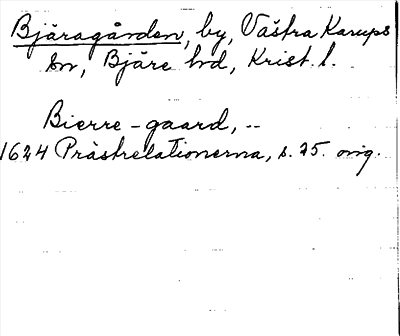 Bjäragården, by, Västra Karups
sn, Bjäre hd, Krist. l.
Bierre-gaard, --
1624 Prästrelationerna, s. 25. orig.